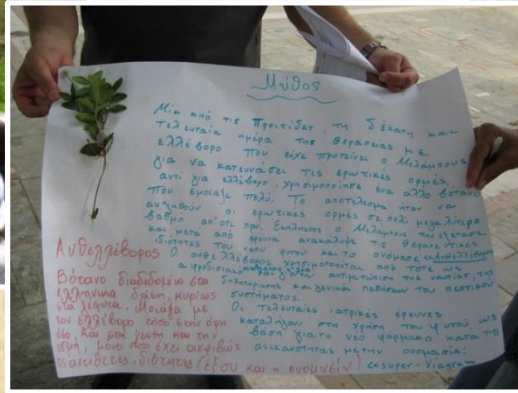 Μύθος
Μία από τις Προιτίδες, τη δέκατη και
τελευταία ημέρα της θεραπείας με
ελλέβορο που είχε προτείνει ο Μελάμπους
για να κατευνάσει τις ερωτικές ορμές,
αντί για ελλέβορο, χρησιμοποίησε ένα άλλο βότανο
που έμοιαζε πολύ. Το αποτέλεσμα ήταν να
αυξηθούν οι ερωτικές ορμές σε πολύ μεγαλύτερο
βαθμό απ' ότι πριν. Ο Μελάμπους
και μετά από έρευνα ανακάλυψε τις θεραπευτικές
ιδιότητες του φυτού και το ονόμασε ανθελλέβορο
Ο ανθελλέβορος χρησιμοποιείται από τότε ως
αφροδισιακό, για την αντιμετώπιση της ναυτίας, της
δηλητηρίασης και γενικά παθήσεων του πεπτικού
συστήματος.
Οι τελευταίες ιατρικές έρευνες
κατέληξαν στη χρήση του φυτού, ως
βάση για το νέο φάρμακο κατά της
ανικανότητας με την ονομασία:
«super-Viagra»
Ανθελλέβορος
Βότανο διαδεδομένο στα
ελληνικά δάση, κυρίως
στα Μοιάζει με
τον ελλέβορο τόσο στην όψη
όσο και στη γεύση και την
οσμή, μόνο που έχει ακριβώς
τις αντίθετες ιδιότητες (εξ ου και η ονομασία)